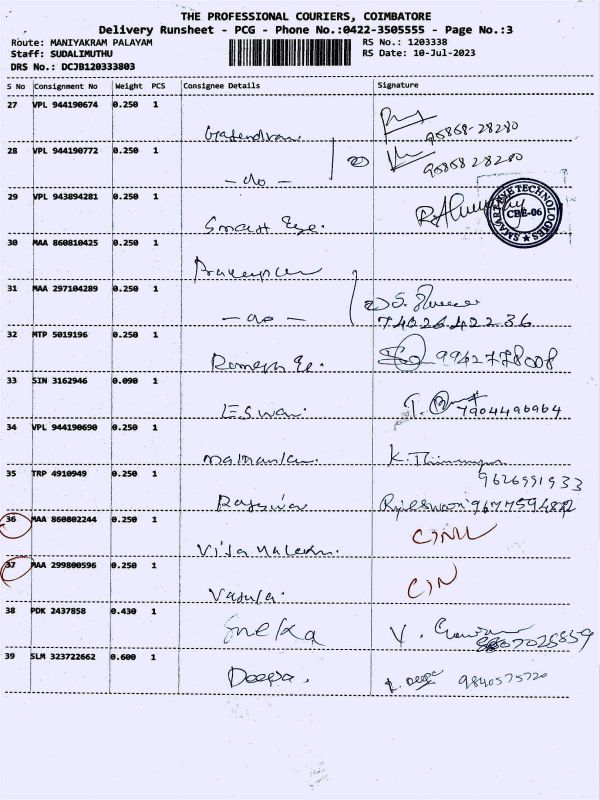 THE PROFESSIONAL COURIERS, COIMBATORE
Delivery Runsheet - PCG - Phone No.:0422-3505555 - Page No.:3
Route: MANIYAKRAM PALAYAM
RS No.: 1203338
Staff: SUDALIMUTHU
RS Date: 10-Jul-2023
DRS No.: DCJB120333803
S No Consignment No Weight PCS Consignee Details Signature
27 VPL 944190674 0.250 1
Gajendran
95858-28280
28 VPL 944190772 0.250 1
- do -
95858 28280
29 VPL 943894281 0.250 1
Smart Eye.
SMAART EYE TECHNOLOGIES
CBE-06
30 MAA 860810425 0.250 1
31 MAA 297104289 0.250 1
- do -
74026 42236
32 MTP 5019196 0.250 1
Ramesh
9942778008
33 SIN 3162946 0.090 1
Eswar.
7904496964
34 VPL 944190690 0.250 1
K.
9626991933
35 TRP 4910949 0.250 1
36 MAA 860802244 0.250 1
37 MAA 299800596 0.250 1
Vasula.
C/N
38 PDK 2437858 0.430 1
Sneka
V.
39 SLM 323722662 0.600 1
Deepa.
Deepa 9840575720